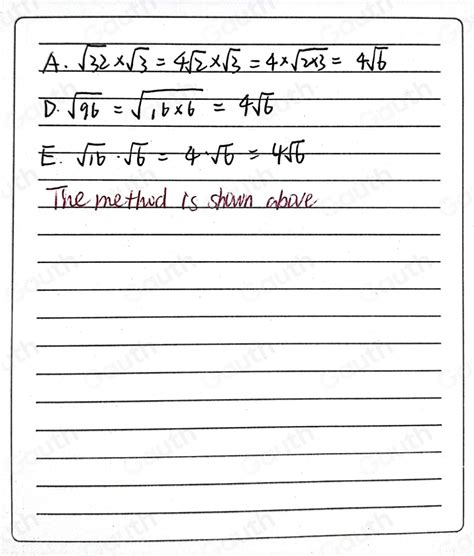 A. √32 × √3 = 4√2 × √3 = 4 × √2×3 = 4√6
D. √96 = √16×6 = 4√6
E. √16 · √6 = 4 · √6 = 4√6
The method is shown above
Gauth